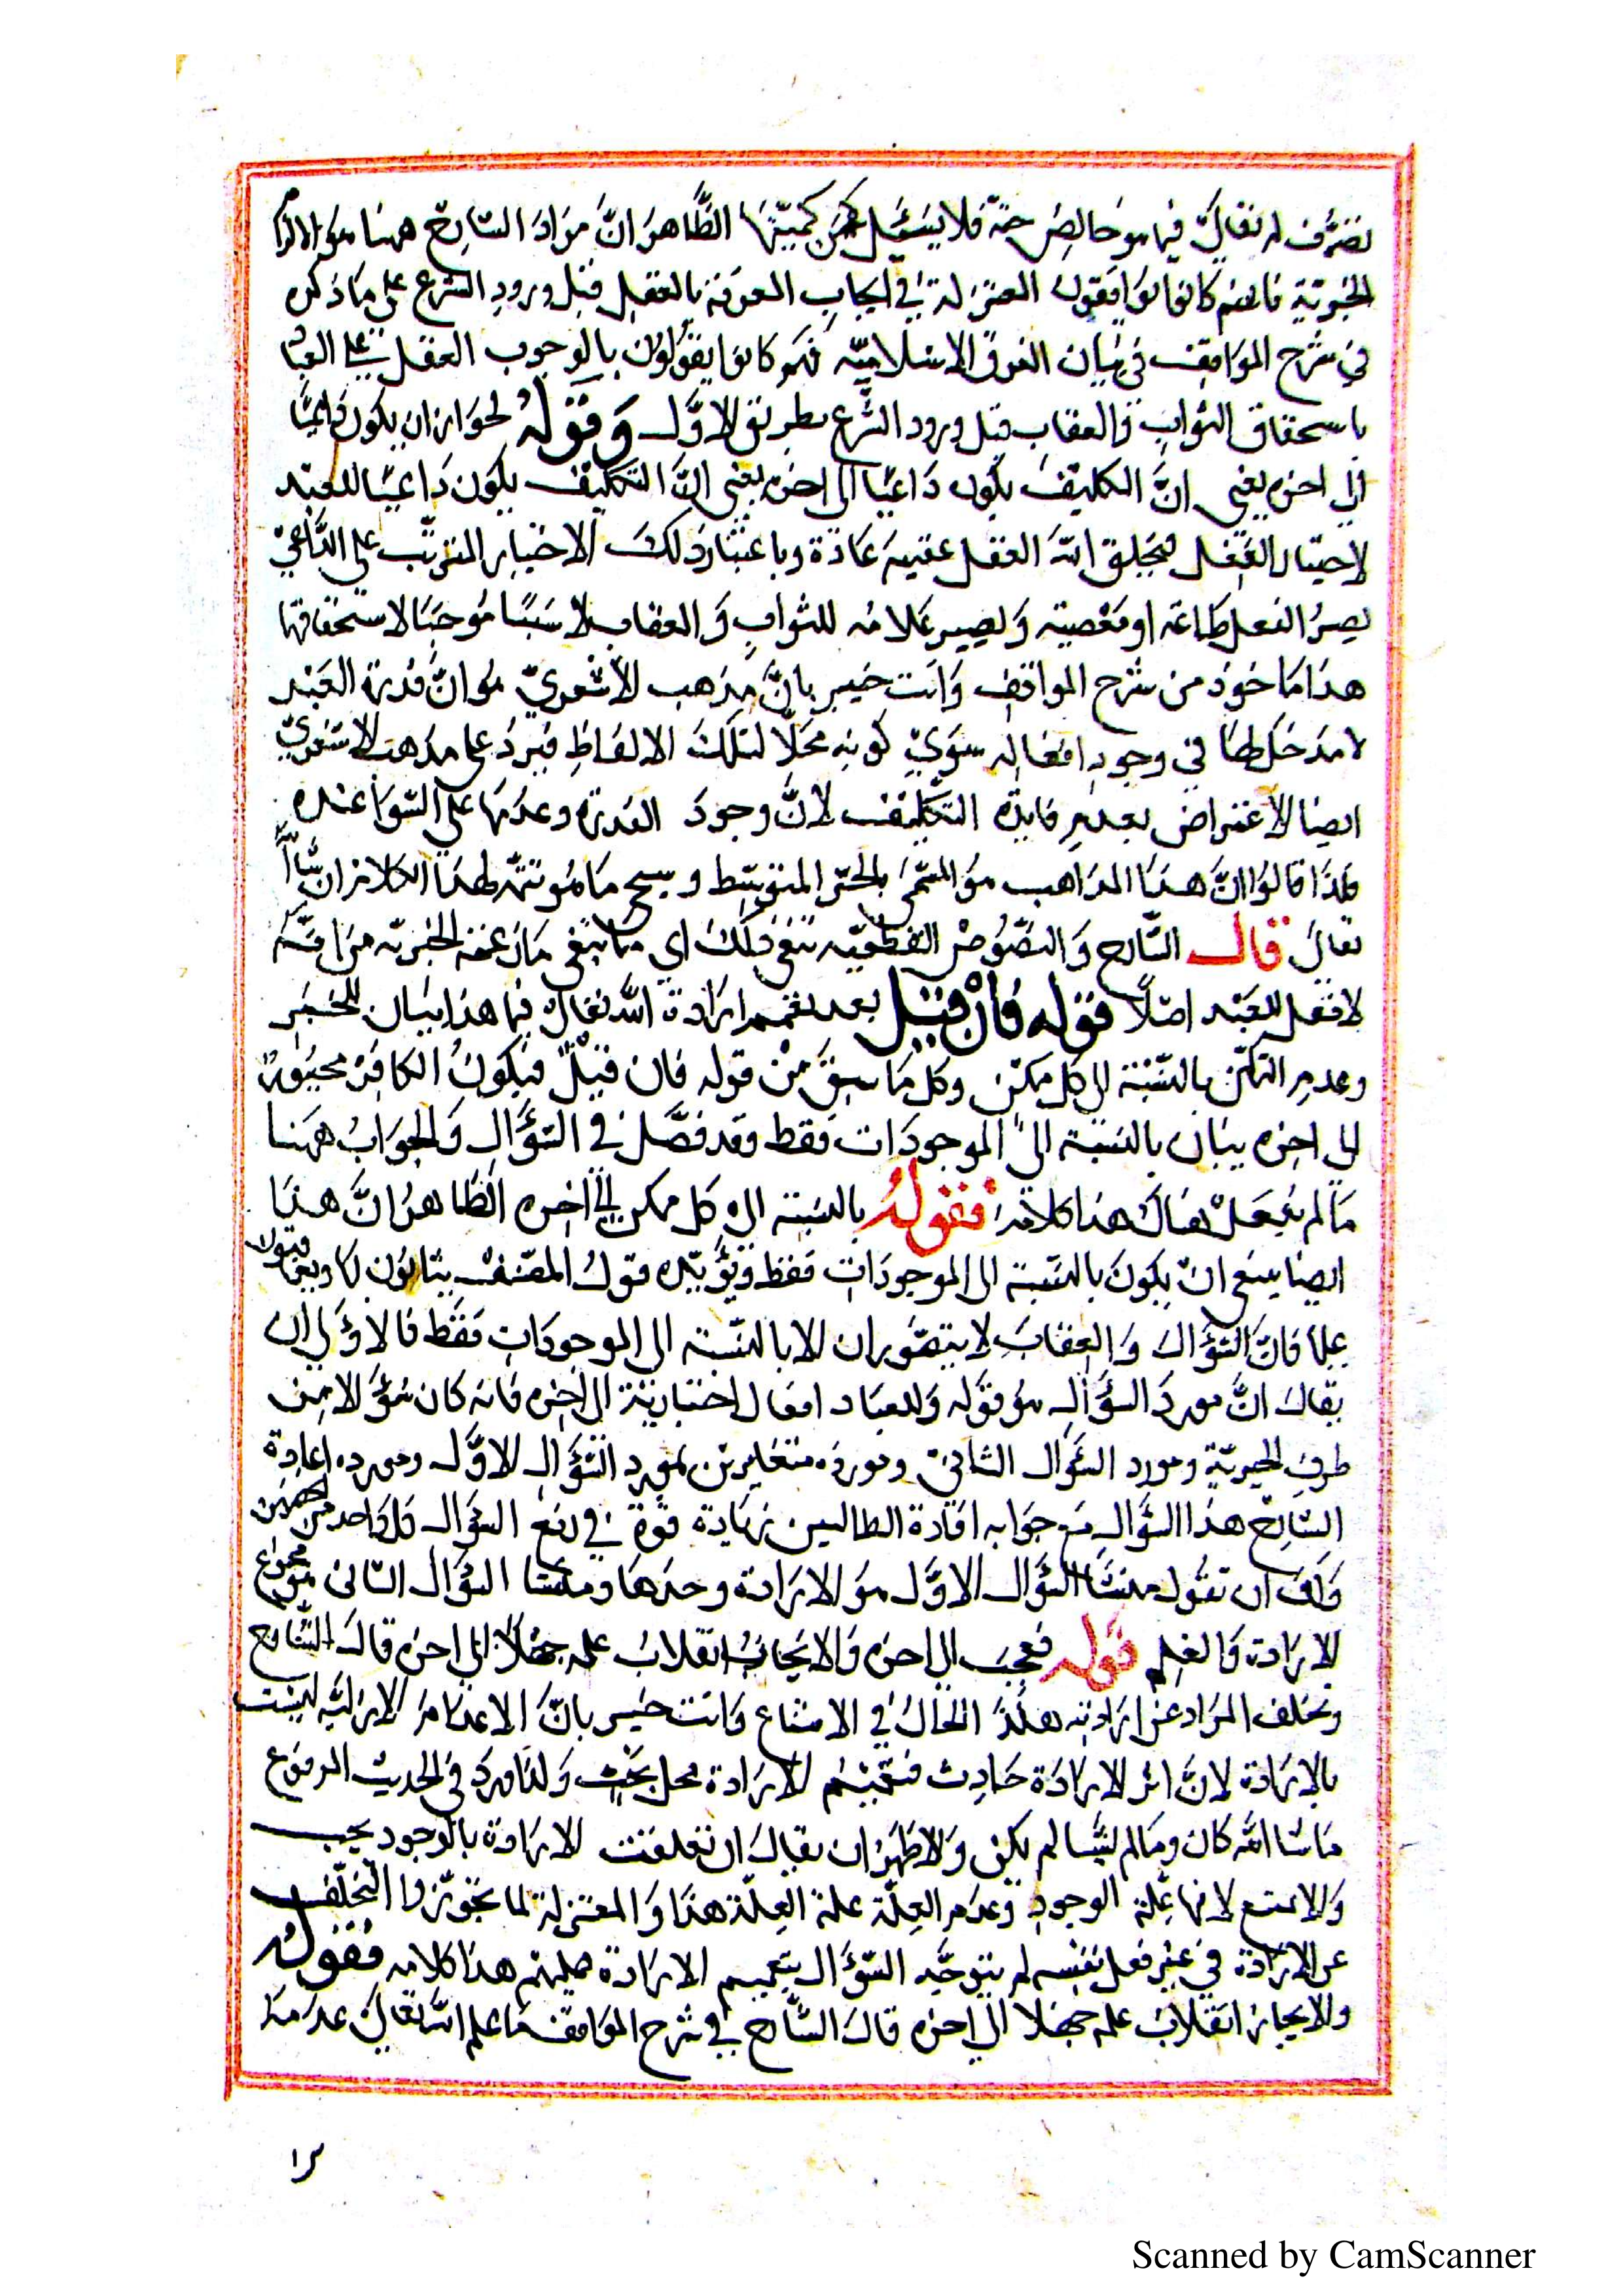 تصرف له تعالى فيما هو خالص حقه فلا يسئل عن كميتها الظاهر ان مراد الشارح ههنا هو الزام
الجبرية فانهم كانوا يوافقون المعتزلة في ايجاب المعرفة بالعقل قبل ورود الشرع على ما ذكره
في شرح المواقف في بيان الفرق الاسلامية فهم كانوا يقولون بالوجوب العقل على العباد
باستحقاق الثواب والعقاب قبل ورود الشرع بطريق الاول وقوله لجواز ان يكون داعيا
الى اخره يعني ان التكليف يكون داعيا الى اخره يعني ان التكليف يكون داعيا للعبد
لاختيار الفعل فيخلق الله الفعل عقيبه عادة وباعتبار ذلك الاختيار المترتب على الداعي
يصير الفعل طاعة او معصية ويصير علامة للثواب والعقاب لا سببا موجبا لاستحقاقها
هذا ماخوذ من شرح المواقف وانت خبير بان مذهب الاشعري هو ان قدرة العبد
لا مدخل لها في وجود افعاله سوى كونه محلا لتلك الالفاظ فيرد على مذهب الاشعري
ايضا الاعتراض بعدم فايدة التكليف لان وجود القدرة وعدمها على السوا عنده
ولذا قالوا ان هذا المذاهب هو المسمى بالجبر المتوسط وسيجي ما هو تتمة لهذا الكلام ان شا الله
تعالى قال الشارح والنصوص القطعية تنفي ذلك اي مما ينفي ما زعمه الجبرية من انه
لا فعل للعبد اصلا قوله فان قيل بعد تعميم ارادة الله تعالى فيما هذا بيان للجبر
وعدم التمكن بالنسبة الى كل ممكن وكل ما سبق من قوله فان قيل فيكون الكافر مجبورا
الى اخره بيان بالنسبة الى الموجودات فقط وقد فصل في السؤال والجواب ههنا
ما لم يفعل هناك هذا كلامه فقوله بالنسبة الى كل ممكن الى اخره الظاهر ان هذا
ايضا ينبغي ان يكون بالنسبة الى الموجودات فقط ويؤيده قول المصنف يثابون بها ويعاقبون
عليها فان السؤال والعقاب لا يتصور ان الا بالنسبة الى الموجودات فقط فالاولى ان
يقال ان مورد السؤال هو قوله وللعباد افعال اختيارية الى اخره فانه كان سؤالا من
طرف الجبرية ومورد السؤال الثاني ومورده متغايرين بمورد السؤال الاول ومورده اعادة
الشارح هذا السؤال مع جوابه افادة الطالبين زيادة قوة في دفع السؤال كل واحد من الجهتين
ولك ان تقول منشأ السؤال الاول هو الارادة وحدها ومنشا السؤال الثاني مجموع
الارادة والعلم قوله فيجب الى اخره والا يجاز انقلاب علمه جهلا الى اخره قال الشارح
وتخلف المراد عن ارادته هكذا الحال في الامتناع وانت خبير بان الاعدام الازلية ليست
بالارادة لان اثر الارادة حادث فتعميم الارادة محل بحث ولذا ورد في الحديث المرفوع
ما شا الله كان وما لم يشا لم يكن والاظهر ان يقال ان تعلقت الارادة بالوجود يجب
والا امتنع لانها علة الوجود وعدم العلة علة العلة هذا والمعتزلة لما يجوزوا التخلف
عن الارادة في غير فعل نفسه لم يتوجه السؤال بتعميم الارادة عليهم هذا كلامه فقوله
والا يجاز انقلاب علمه جهلا الى اخره قال الشارح في شرح المواقف ما علم الله تعالى عدمه
Scanned by CamScanner